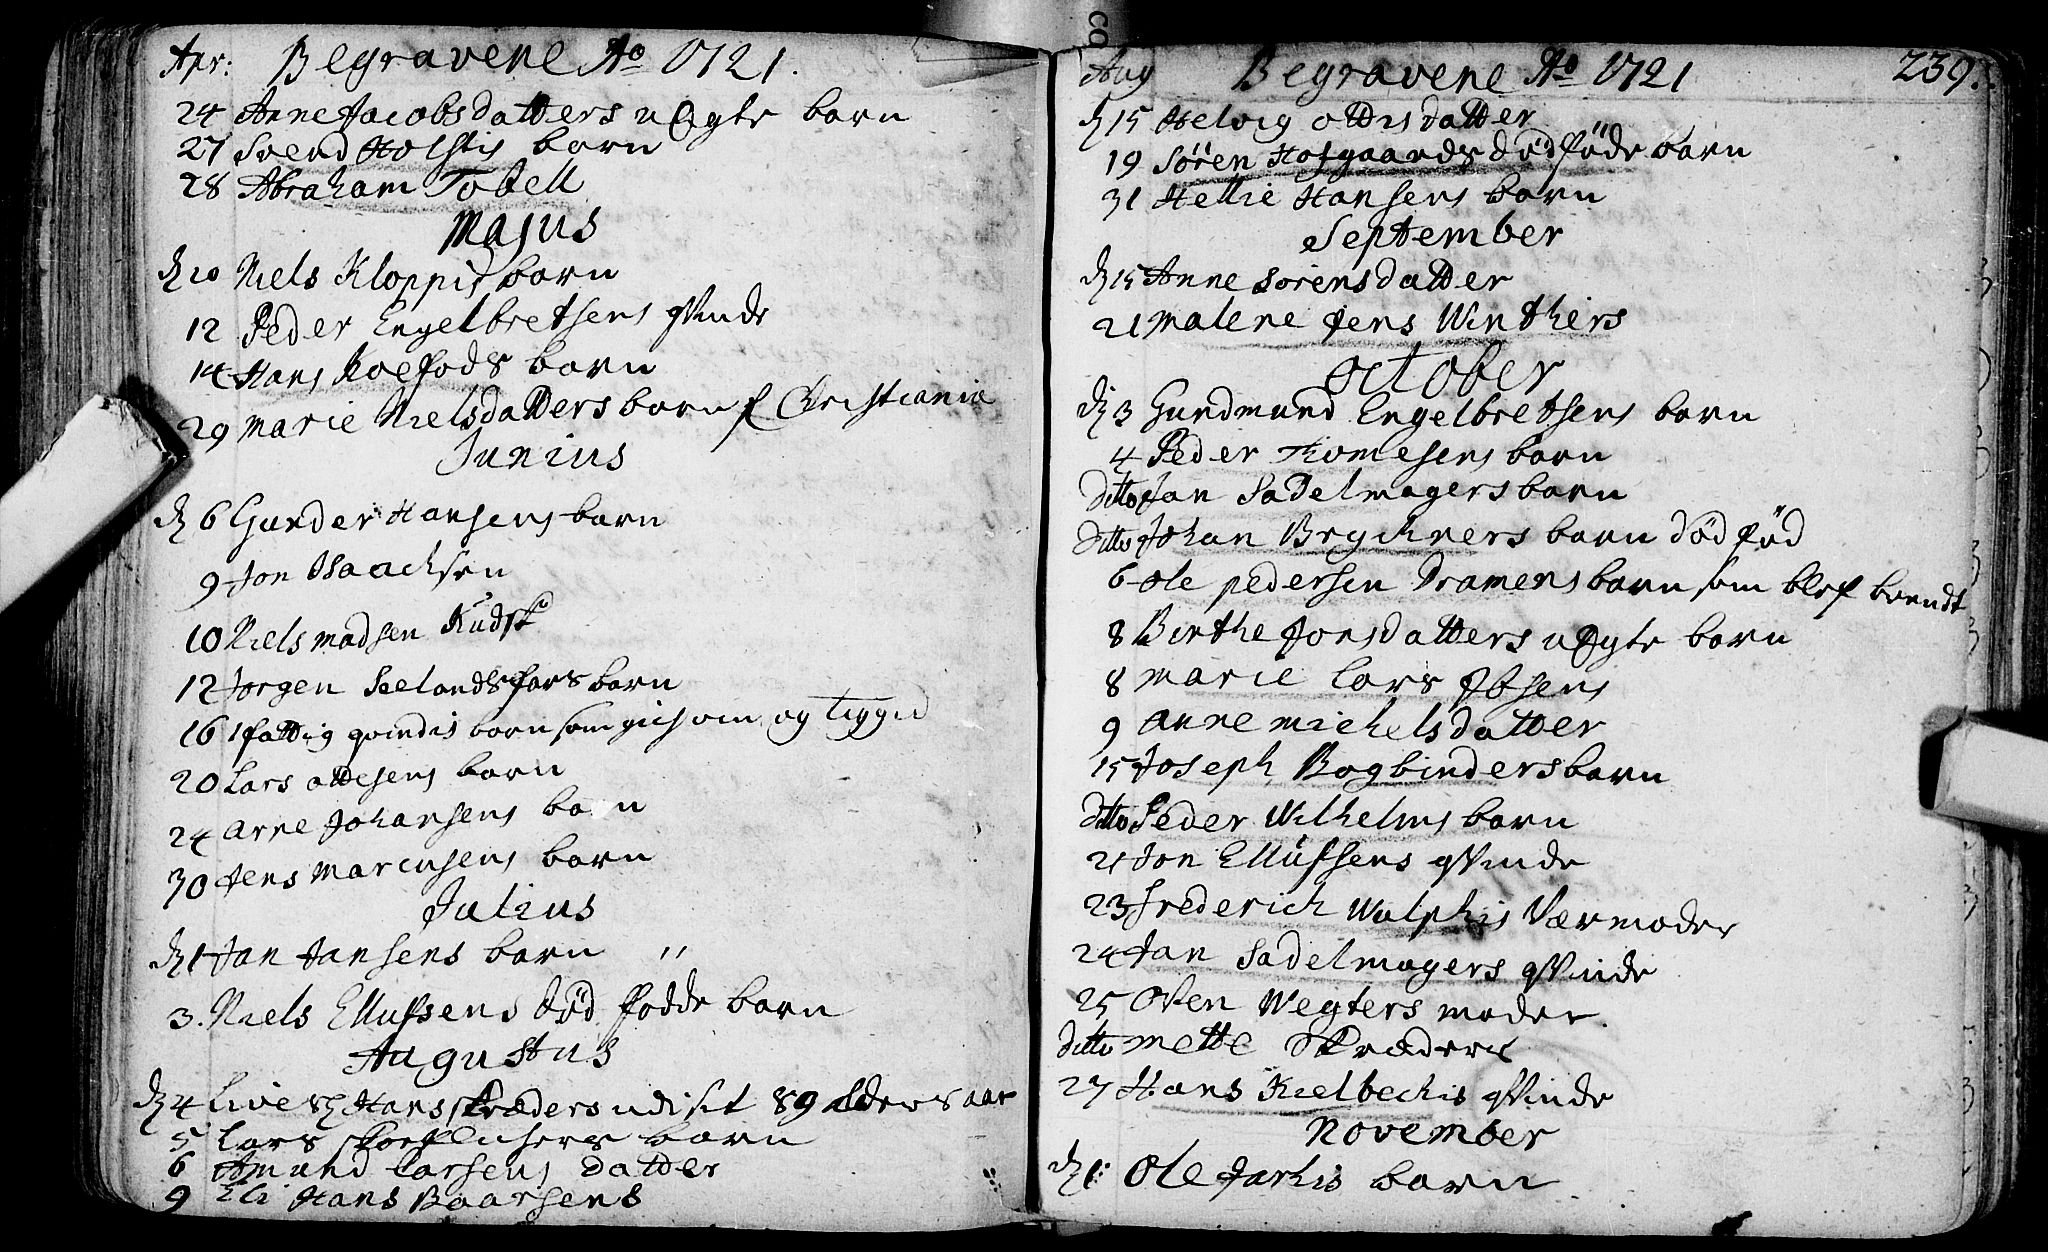 Apr: Begravene Ao 1721.
24 Anne Jacobsdatters uÆgte barn
27 Svend Holstis barn
28 Abraham Tobell
Majus
d 10 Niels Kloppis barn
12 Peder Engelbretsens qvinde
14 Hans Roefods barn
29 Marie Nielsdatters barn f Christiania
Junius
d 6 Gunder Hansens barn
9 Jon Isaachsen
10 Niels Madsen Kudsk
12 Jorgen Seelandsfars barn
16 1 fattig qvindis barn som gich om og tigged
20 Lars Ottesens barn
24 Arne Johansens barn
30 Jens Marcusens barn
Julius
d 1 Jan Jansens barn
3. Niels Ellufsens død fødde barn
Augustus
d 4 Live Hans skræders udi sit 89 alders aar
5 Lars barn
6 Amund Larsens datter
9 Eli Hans Baarsens
Aug Begravene Ao 1721 239.
d 15 Helvig Ottisdatter
19 Søren Hofgaards dødføde barn
31 Hellie Hansens barn
September
d 15 Anne Sørensdatter
21 Malene Jens Winthers
October
d 3 Gundmund Engelbretsens barn
4 Peder Thomesens barn
ditto Jan Sadelmagers barn
ditto Johan Brychners barn død fød
6 Ole Pedersen Dramens barn som blef brendt
8 Birthe Jonsdatters uÆgte barn
8 Marie Lars Ibsens
9 Anne Michelsdatter
15 Joseph Bogbinders barn
ditto Peder Wilhelms barn
21 Jon Ellufsens qvinde
23 Frederich Wulphis Værmoder
24 Jan Sadelmagers qvinde
25 Oven Wegters moder.
ditto Mette Skræders
27 Hans Kielbechis qvinde
November
d 1: Ole Jarhis barn